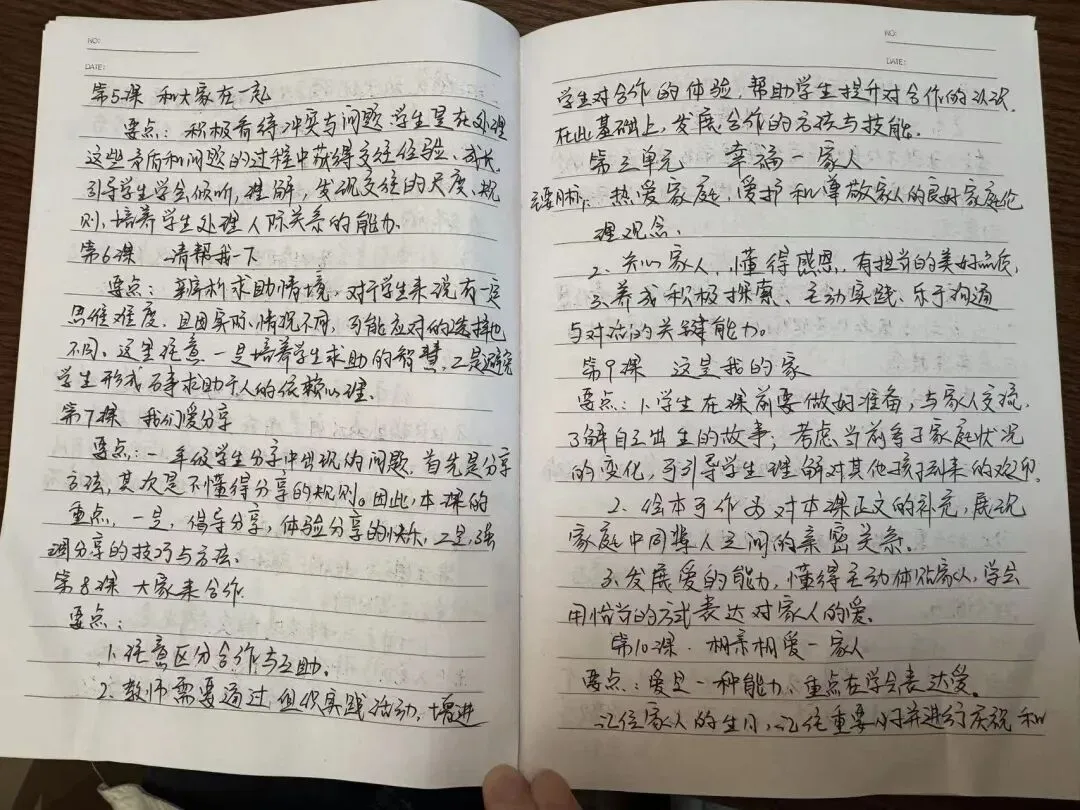 NO:
DATE:
第5课 和大家在一起
要点：积极看待冲突与问题 学生是在处理
这些矛盾和问题的过程中获得交往经验、成长，
引导学生学会倾听，理解，发现交往的尺度、规
则，培养学生处理人际关系的能力。
第6课 请帮我一下
要点：辨析求助情境，对于学生来说有一定
思维难度，且因实际情况不同，可能应对的选择也
不同。这里注意一是培养学生求助的智慧，二是避免
学生形成万事求助于人的依赖心理。
第7课 我们爱分享
要点：一年级学生分享中出现的问题，首先是分享
方法，其次是不懂得分享的规则。因此，本课的
重点，一是，倡导分享，体验分享的快乐，二是，强
调分享的技巧与方法。
第8课 大家来合作
要点：
1、注意区分合作与互助。
2、教师需要通过组织实践活动，增进
NO:
DATE:
学生对合作的体验，帮助学生提升对合作的认识，
在此基础上，发展合作的方法与技能。
第三单元 幸福一家人
热爱家庭，爱护和尊敬家人的良好家庭伦
理观念。
2、关心家人，懂得感恩，有担当的美好品质，
3、养成积极探索、主动实践、乐于沟通
与对话的关键能力。
第9课 这是我的家
要点：1、学生在课前要做好准备，与家人交流，
了解自己出生的故事；考虑当前多子家庭状况
的变化，可引导学生理解对其他孩子到来的欢迎。
2、绘本可作为对本课正文的补充，展现
家庭中同辈人之间的亲密关系。
3、发展爱的能力，懂得主动体贴家人，学会
用恰当的方式表达对家人的爱。
第10课 相亲相爱一家人
要点：爱是一种能力、重点在学会表达爱。
记住家人的生日，记住重要 并进行庆祝和